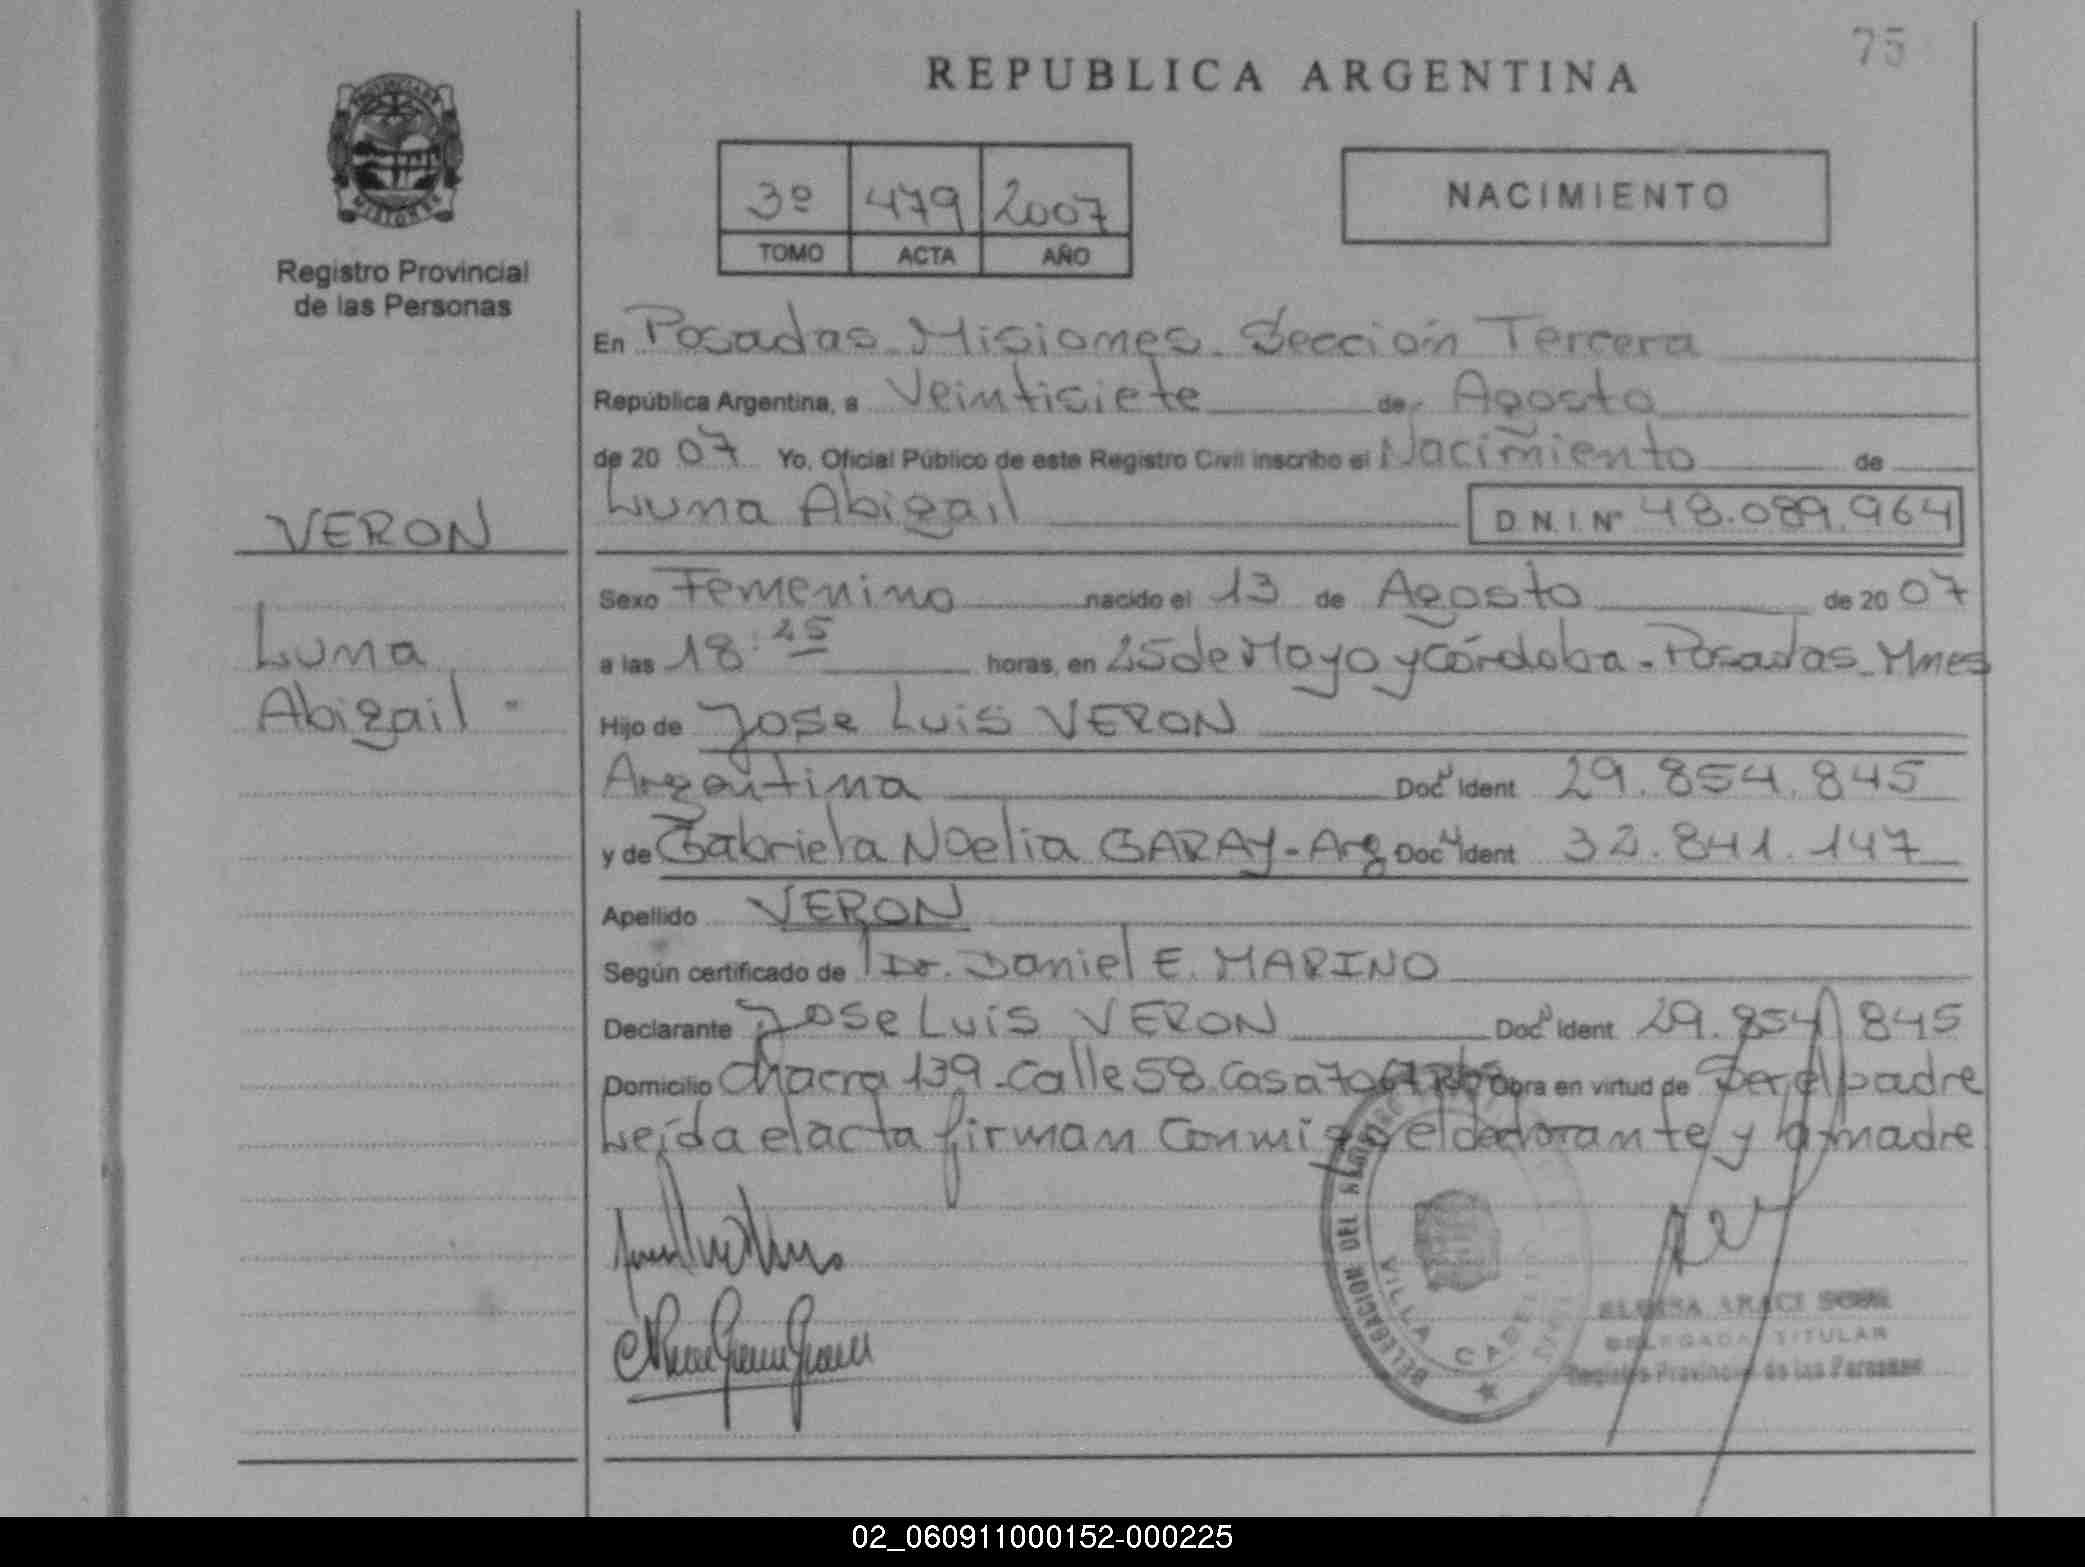 75
REPUBLICA ARGENTINA
MISIONES
Registro Provincial
de las Personas
3º 479 2007
TOMO ACTA AÑO
NACIMIENTO
En Posadas Misiones. Sección Tercera
República Argentina, a Veintisiete de Agosto
de 20 07 Yo, Oficial Público de este Registro Civil inscribo el Nacimiento de
Luna Abigail D.N.I. Nº 48.089.964
VERON
Luna
Abigail -
Sexo Femenino nacido el 13 de Agosto de 20 07
a las 18:25 horas, en 25 de Mayo y Córdoba - Posadas - Mnes
Hijo de Jose Luis VERON
Argentina Doc Ident 29.854.845
y de Gabriela Noelia GARAY - Arg Doc Ident 32.841.147
Apellido VERON
Según certificado de Dr. Daniel E. MARINO
Declarante Jose Luis VERON Doc Ident 29.854.845
Domicilio Chacra 139 - Calle 58 Casa Obra en virtud de Ser el padre
Leída el acta firman Conmigo el declarante y la madre
DELEGACION DEL
VILLA CABELLO
DELEGADA TITULAR
Registro Provincial de las Personas
02_060911000152-000225